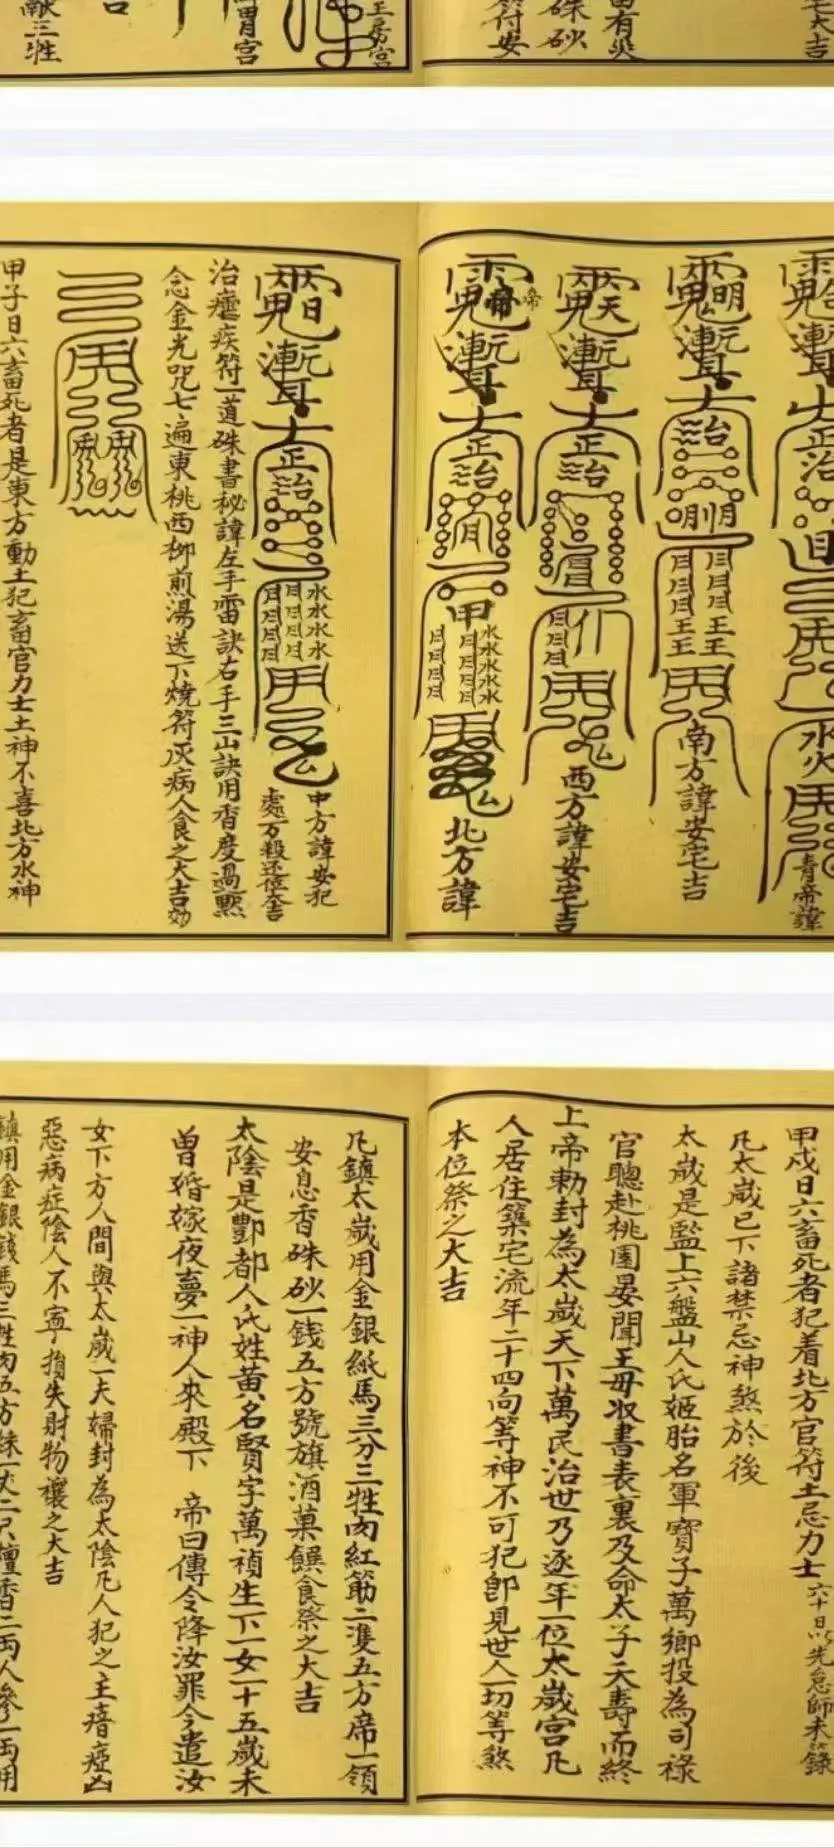 宅大吉
有災
硃砂
符安
王房宫
胃宫
献三牲
青帝諱
南方諱安宅吉
西方諱安宅吉
北方諱
中方諱安犯
處万殺还位大吉
治瘧疾符一道硃書秘諱左手雷訣右手三山訣用香度過點
念金光咒七遍東桃西柳煎湯送下燒符灰病人食之大吉効
甲子日六畜死者是東方動土犯畜官力士土神不喜北方水神
甲戍日六畜死者犯着北方官符土忌力士六十日以先忌師未錄
凡太歲已下諸禁忌神煞於後
太歲是監上六盤山人氏姬胎名軍寶子萬鄉投為司祿
官聽赴桃園晏聞王母收書表裏及命太子夭壽而終
上帝勅封為太歲天下萬民治世乃逐年一位太歲宮凡
人居住築宅流年二十四向等神不可犯即見世人一切等煞
本位祭之大吉
凡鎮太歲用金銀紙馬三分三牲肉紅筋二隻五方席一領
安息香硃砂一錢五方號旗酒菓饌食祭之大吉
太陰是酆都人氏姓黃名賢字萬禎生下一女一十五歲未
曾婚嫁夜夢一神人來殿下 帝曰傳令降汝罪今遣汝
女下方人間與太歲一夫婦封為太陰凡人犯之主瘖瘂凶
惡病症陰人不寧損失財物禳之大吉
鎮用金銀錢馬三牲肉五方妹一伏二尺檀香二兩人參一兩用